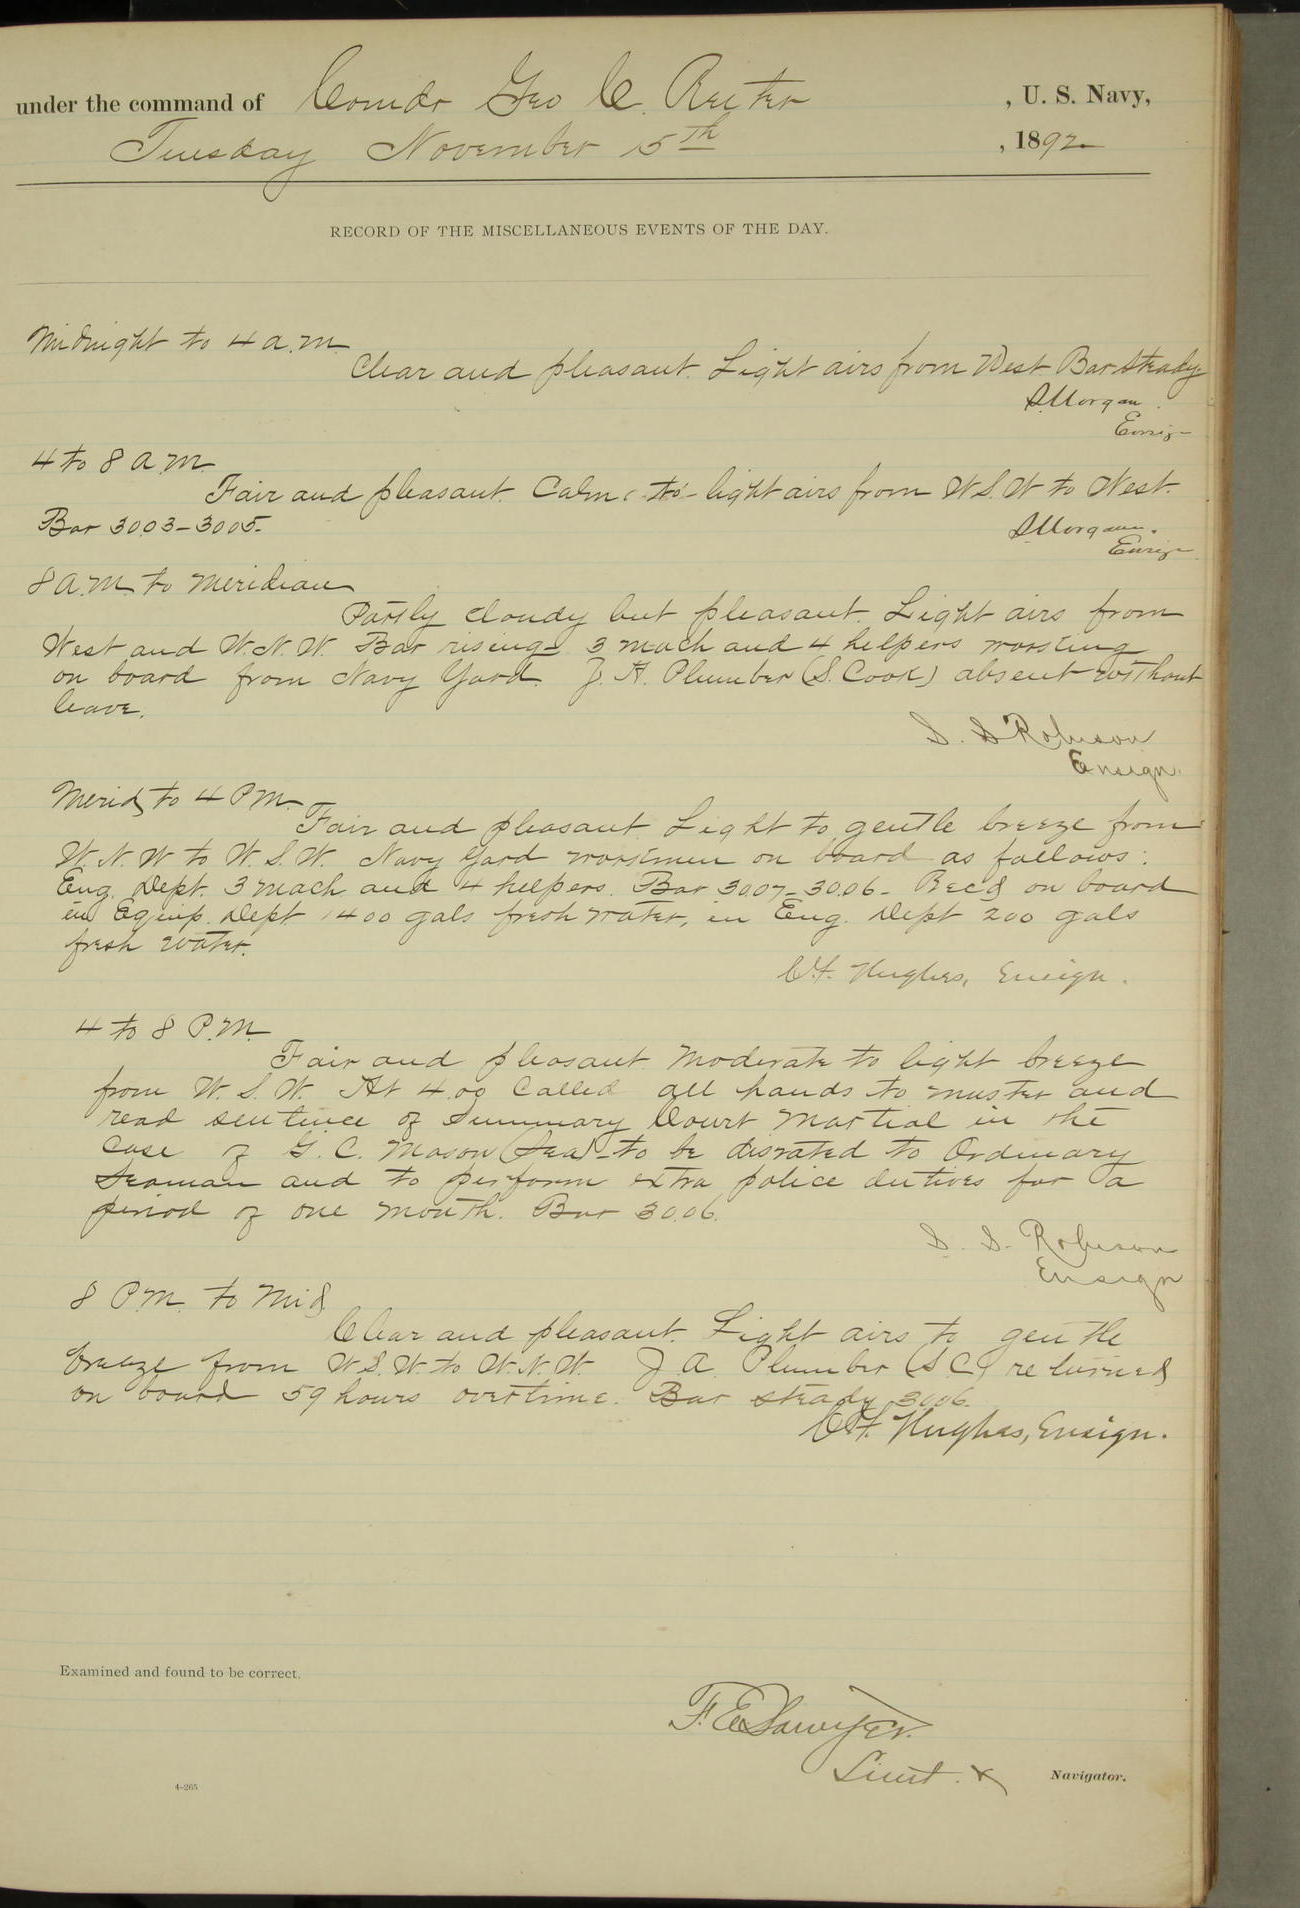 under the command of Comdr Geo C. Reiter, U. S. Navy,
Tuesday November 15th, 1892
RECORD OF THE MISCELLANEOUS EVENTS OF THE DAY.
Midnight to 4 a.m.
Clear and pleasant. Light airs from West Bar steady
Morgan.
Ensign
4 to 8 a.m.
Fair and pleasant. Calm to light airs from W.S.W to West.
Bar 30.03-30.05-
Morgan.
Ensign
8 A.M. to Meridian
Partly cloudy but pleasant. Light airs from
West and W.N.W. Bar rising. 3 mach and 4 helpers working
on board from Navy Yard. J. A. Plumber (S. Cook) absent without
leave.
S. S Robison
Ensign.
Merid to 4 P.M.
Fair and pleasant Light to gentle breeze from
W.N.W to W.S.W. Navy Yard workmen on board as follows:
Eng. Dept. 3 mach and 4 helpers. Bar 30.07-30.06- Rec'd on board
in Equip. Dept 1400 gals fresh water, in Eng. Dept 200 gals
fresh water.
C.F. Hughes, Ensign.
4 to 8 P.M.
Fair and pleasant Moderate to light breeze
from W.S.W. At 4.09 Called all hands to muster and
read sentence of Summary Court Martial in the
case of G. C. Mason (Sea) to be disrated to Ordinary
Seaman and to perform extra police duties for a
period of one month. Bar 30.06.
S. S. Robison
Ensign
8 P.M. to Mid
Clear and pleasant. Light airs to gentle
breeze from W.S.W. to W.N.W. J A Plumber (S.C.) returned
on board 59 hours overtime. Bar steady 30.06.
C.F. Hughes, Ensign.
Examined and found to be correct.
F. E. Sawyer.
Lieut. &
Navigator.
4-265